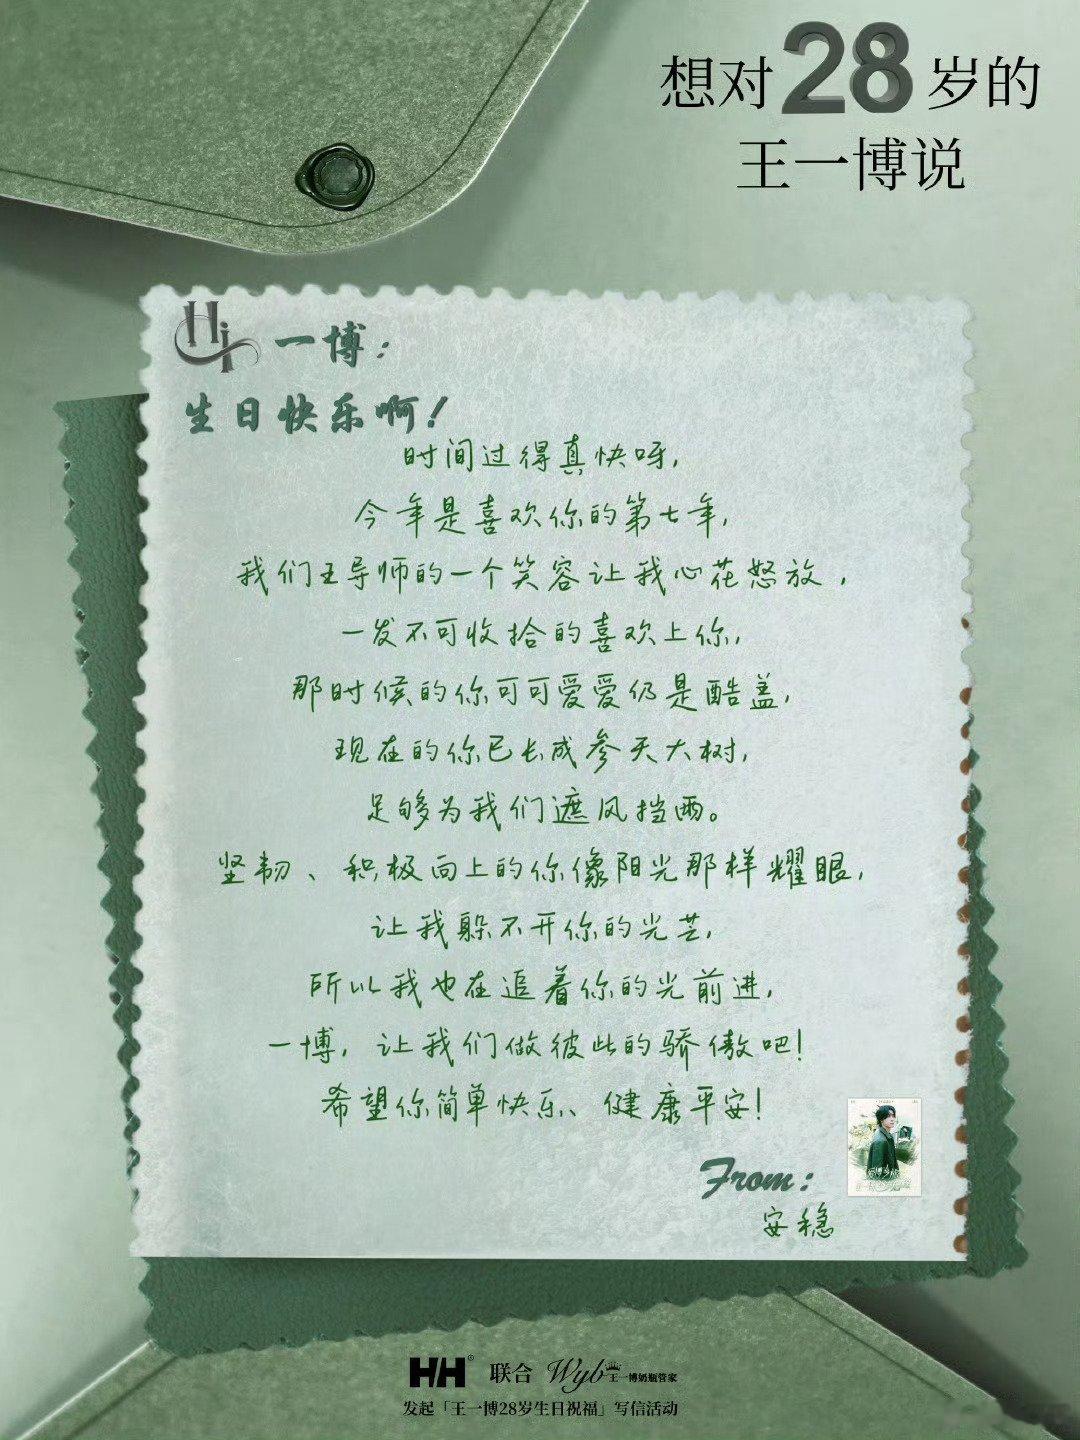 想对28岁的
王一博说
Hi 一博：
生日快乐啊！
时间过得真快呀，
今年是喜欢你的第七年，
我们王导师的一个笑容让我心花怒放，
一发不可收拾的喜欢上你，
那时候的你可可爱爱仍是酷盖，
现在的你已长成参天大树，
足够为我们遮风挡雨。
坚韧、积极向上的你像阳光那样耀眼，
让我躲不开你的光芒，
所以我也在追着你的光前进，
一博，让我们做彼此的骄傲吧！
希望你简单快乐、健康平安！
From：
安稳
HH® 联合 Wyb 王一博奶瓶管家
发起「王一博28岁生日祝福」写信活动